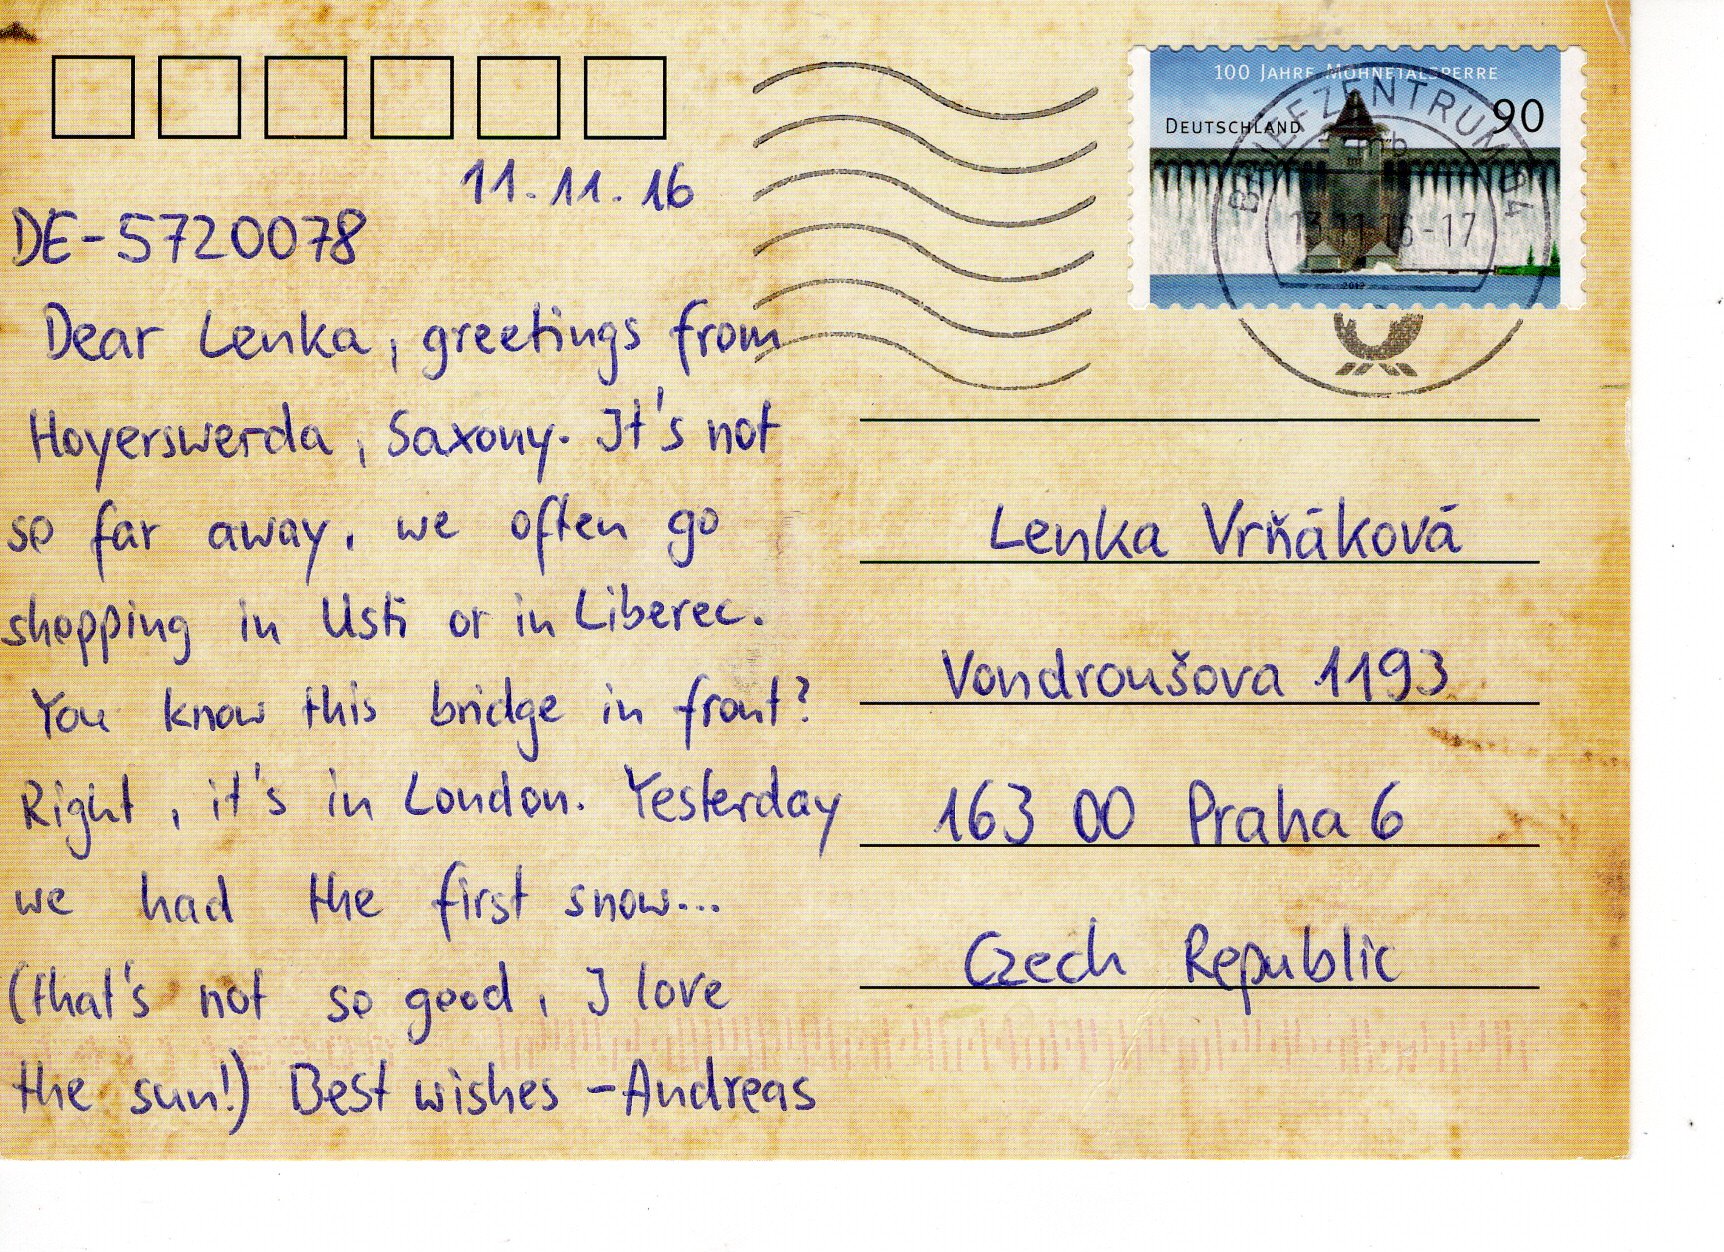 11.11.16
DE-5720078
Dear Lenka, greetings from
Hoyerswerda, Saxony. It's not
so far away, we often go
shopping in Usti or in Liberec.
You know this bridge in front?
Right, it's in London. Yesterday
we had the first snow...
(that's not so good, I love
the sun!) Best wishes - Andreas
100 JAHRE MÖHNETALSPERRE
DEUTSCHLAND 90
2013
BRIEFZENTRUM 04
mb
13.11.16-17
Lenka Vrňáková
Vondroušova 1193
163 00 Praha 6
Czech Republic